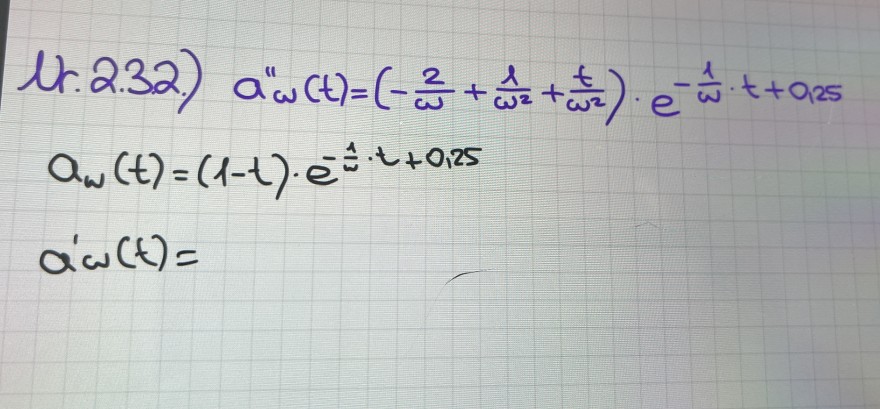 Nr. 2.3.2.) a''ω(t)=(-2/ω+1/ω²+t/ω²)·e^(-1/ω·t+0,25)
aω(t)=(1-t)·e^(-1/ω·t+0,25)
a'ω(t)=